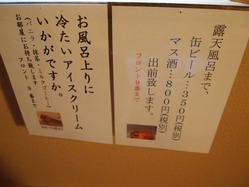 露天風呂まで、
缶ビール…350円(税別)
マス酒…800円(税別)
出前致します。
フロント9番まで
お風呂上りに
冷たいアイスクリーム
いかがですか。
(バニラ・抹茶・
お部屋にお持ち致します
フロント 9番まで